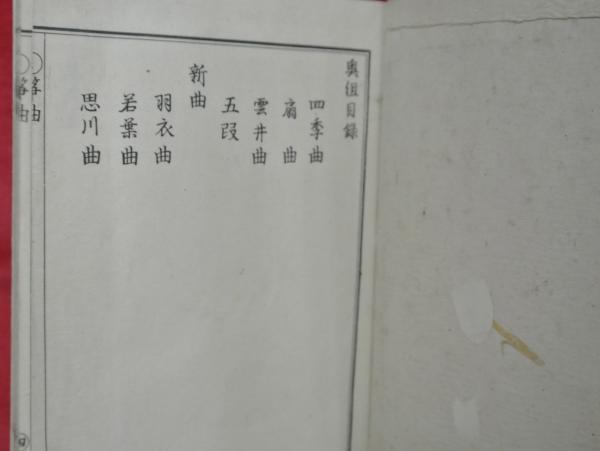 奥組目録
四季曲
扇曲
雲井曲
五段
新曲
羽衣曲
若葉曲
思川曲
箏曲
箏曲